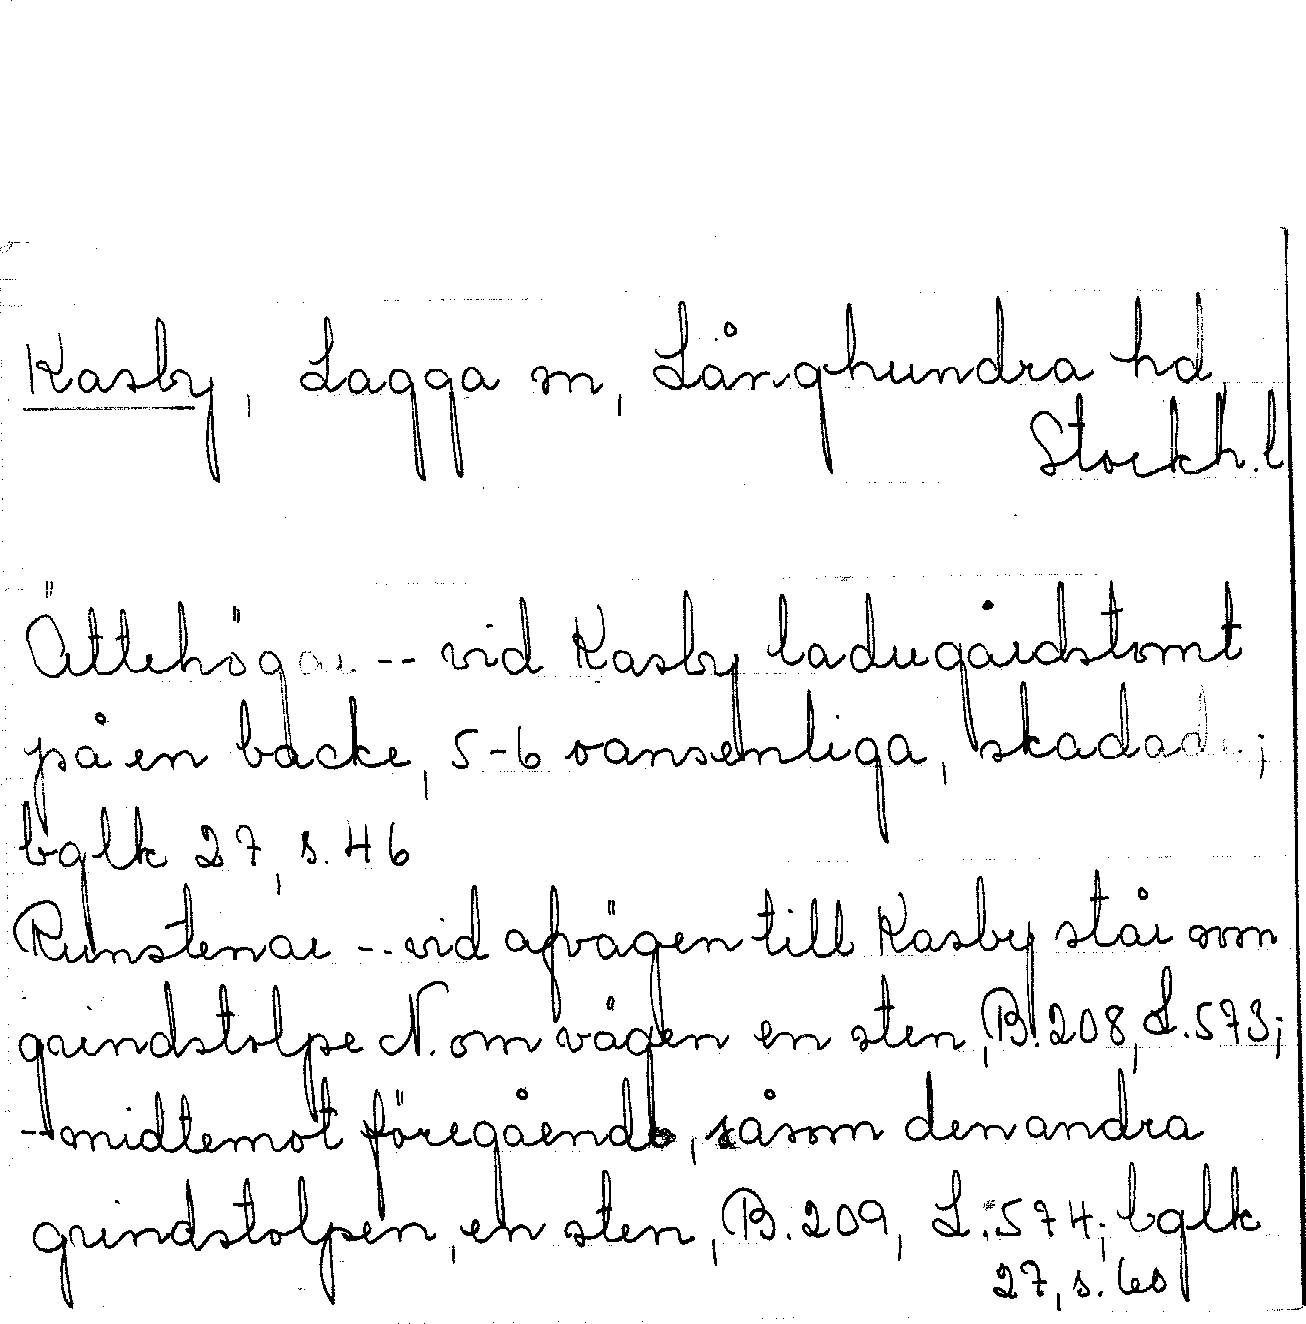 Kasby, Lagga sn, Långhundra hd,
Stockh. l
Ättehögar -- vid Kasby ladugårdstomt
på en backe, 5-6 oansenliga, skadade;
bglk 27, s. 46
Runstenar -- vid afvägen till Kasby står som
grindstolpe N. om vägen en sten, B. 208, L. 573;
-- midtemot föregående, såsom den andra
grindstolpen, en sten, B. 209, L. 574; bglk
27, s. 60